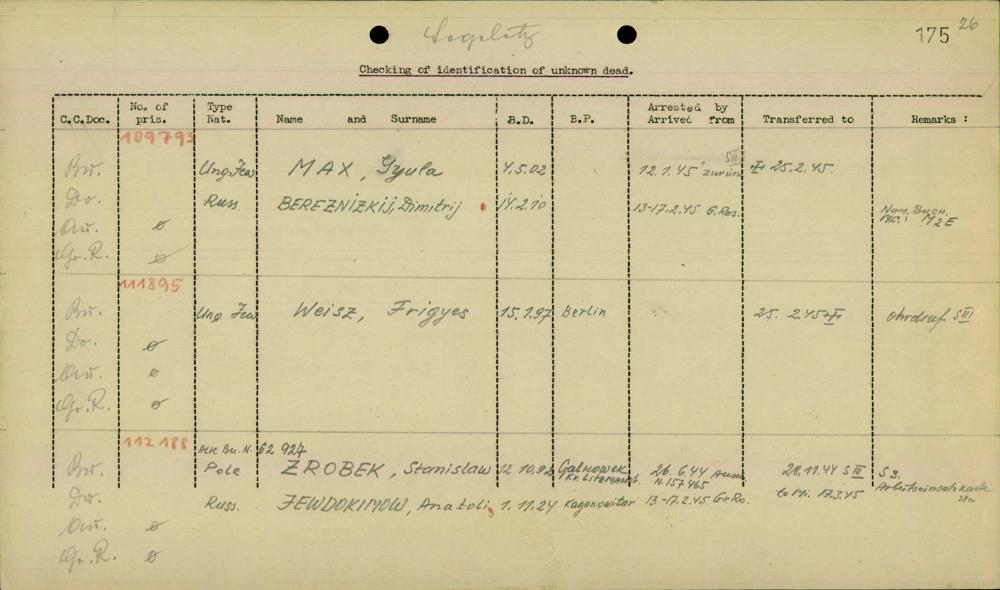 175 26
Checking of identification of unknown dead.
C.C.Doc. No. of pris. Type Nat. Name and Surname B.D. B.P. Arrested by Arrived from Transferred to Remarks :
109793
Bu. Ung. Jew MAX, Gyula 4.5.02 12.1.45 zurück SIII 25.2.45.
Do. Russ. BEREZNIZKIJ, Dimitrij 14.2.10 13-17.2.45 G.Ros. Num. Buch. MC: M2E
Au. ø
Gr.R. ø
111895
Bu. Ung Jew Weisz, Frigyes 15.1.97 Berlin 25. 2.45 Ohrdruf SIII
Do. ø
Au. ø
Gr.R. ø
112188 Alte Bu. N. 62 927
Bu. Pole ZROBEK, Stanislaw 12.10.96 Galkowek Kr. Litzmannst. 26.6.44 Ausch. N. 157465 28.11.44 SIII to Mi. 17.3.45 S3. Arbeitseinsatzkarte
Do. Russ. JEWDOKIMOW, Anatoli 1.11.24 Kagonowitar 13-17.2.45 Gr.Ro.
Au. ø
Gr.R. ø